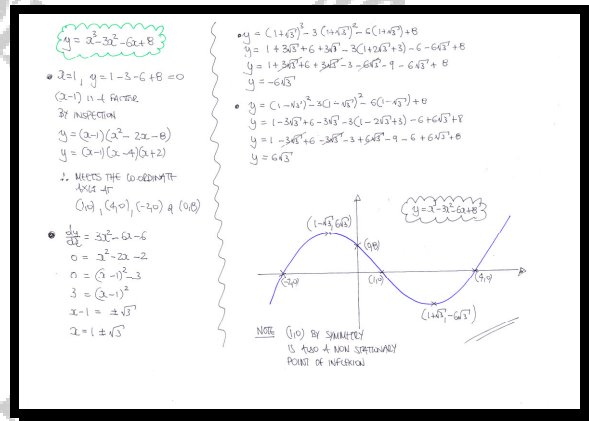 y = x³-3x²-6x+8
• x=1, y=1-3-6+8=0
(x-1) IS A FACTOR
BY INSPECTION
y = (x-1)(x²-2x-8)
y = (x-1)(x-4)(x+2)
∴ MEETS THE CO-ORDINATE
AXES AT
(1,0), (4,0), (-2,0) & (0,8)
• dy/dx = 3x²-6x-6
0 = x²-2x-2
0 = (x-1)²-3
3 = (x-1)²
x-1 = ±√3
x = 1±√3
• y = (1+√3)³-3(1+√3)²-6(1+√3)+8
y = 1+3√3+6+3√3-3(1+2√3+3)-6-6√3+8
y = 1+3√3+6+3√3-3-6√3-9-6-6√3+8
y = -6√3
• y = (1-√3)³-3(1-√3)²-6(1-√3)+8
y = 1-3√3+6-3√3-3(1-2√3+3)-6+6√3+8
y = 1-3√3+6-3√3-3+6√3-9-6+6√3+8
y = 6√3
y = x³-3x²-6x+8
(1-√3, 6√3)
(0,8)
(-2,0)
(1,0)
(4,0)
(1+√3, -6√3)
NOTE (1,0) BY SYMMETRY
IS ALSO A NON STATIONARY
POINT OF INFLEXION